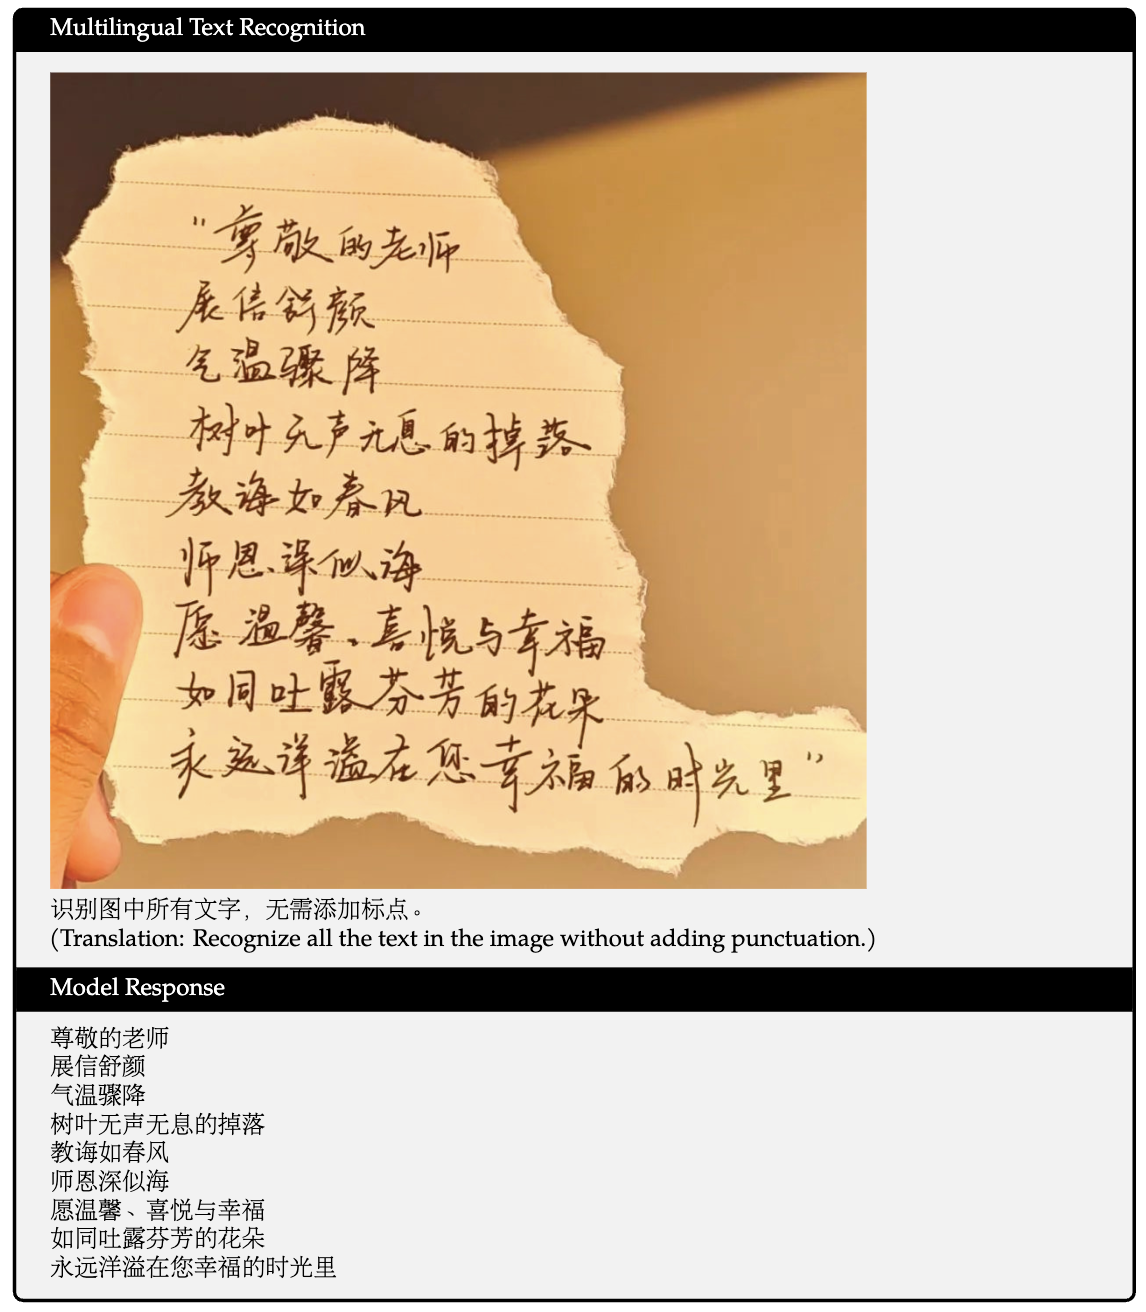 Multilingual Text Recognition
"尊敬的老师
展信舒颜
气温骤降
树叶无声无息的掉落
教诲如春风
师恩深似海
愿温馨、喜悦与幸福
如同吐露芬芳的花朵
永远洋溢在您幸福的时光里"
识别图中所有文字，无需添加标点。
(Translation: Recognize all the text in the image without adding punctuation.)
Model Response
尊敬的老师
展信舒颜
气温骤降
树叶无声无息的掉落
教诲如春风
师恩深似海
愿温馨、喜悦与幸福
如同吐露芬芳的花朵
永远洋溢在您幸福的时光里